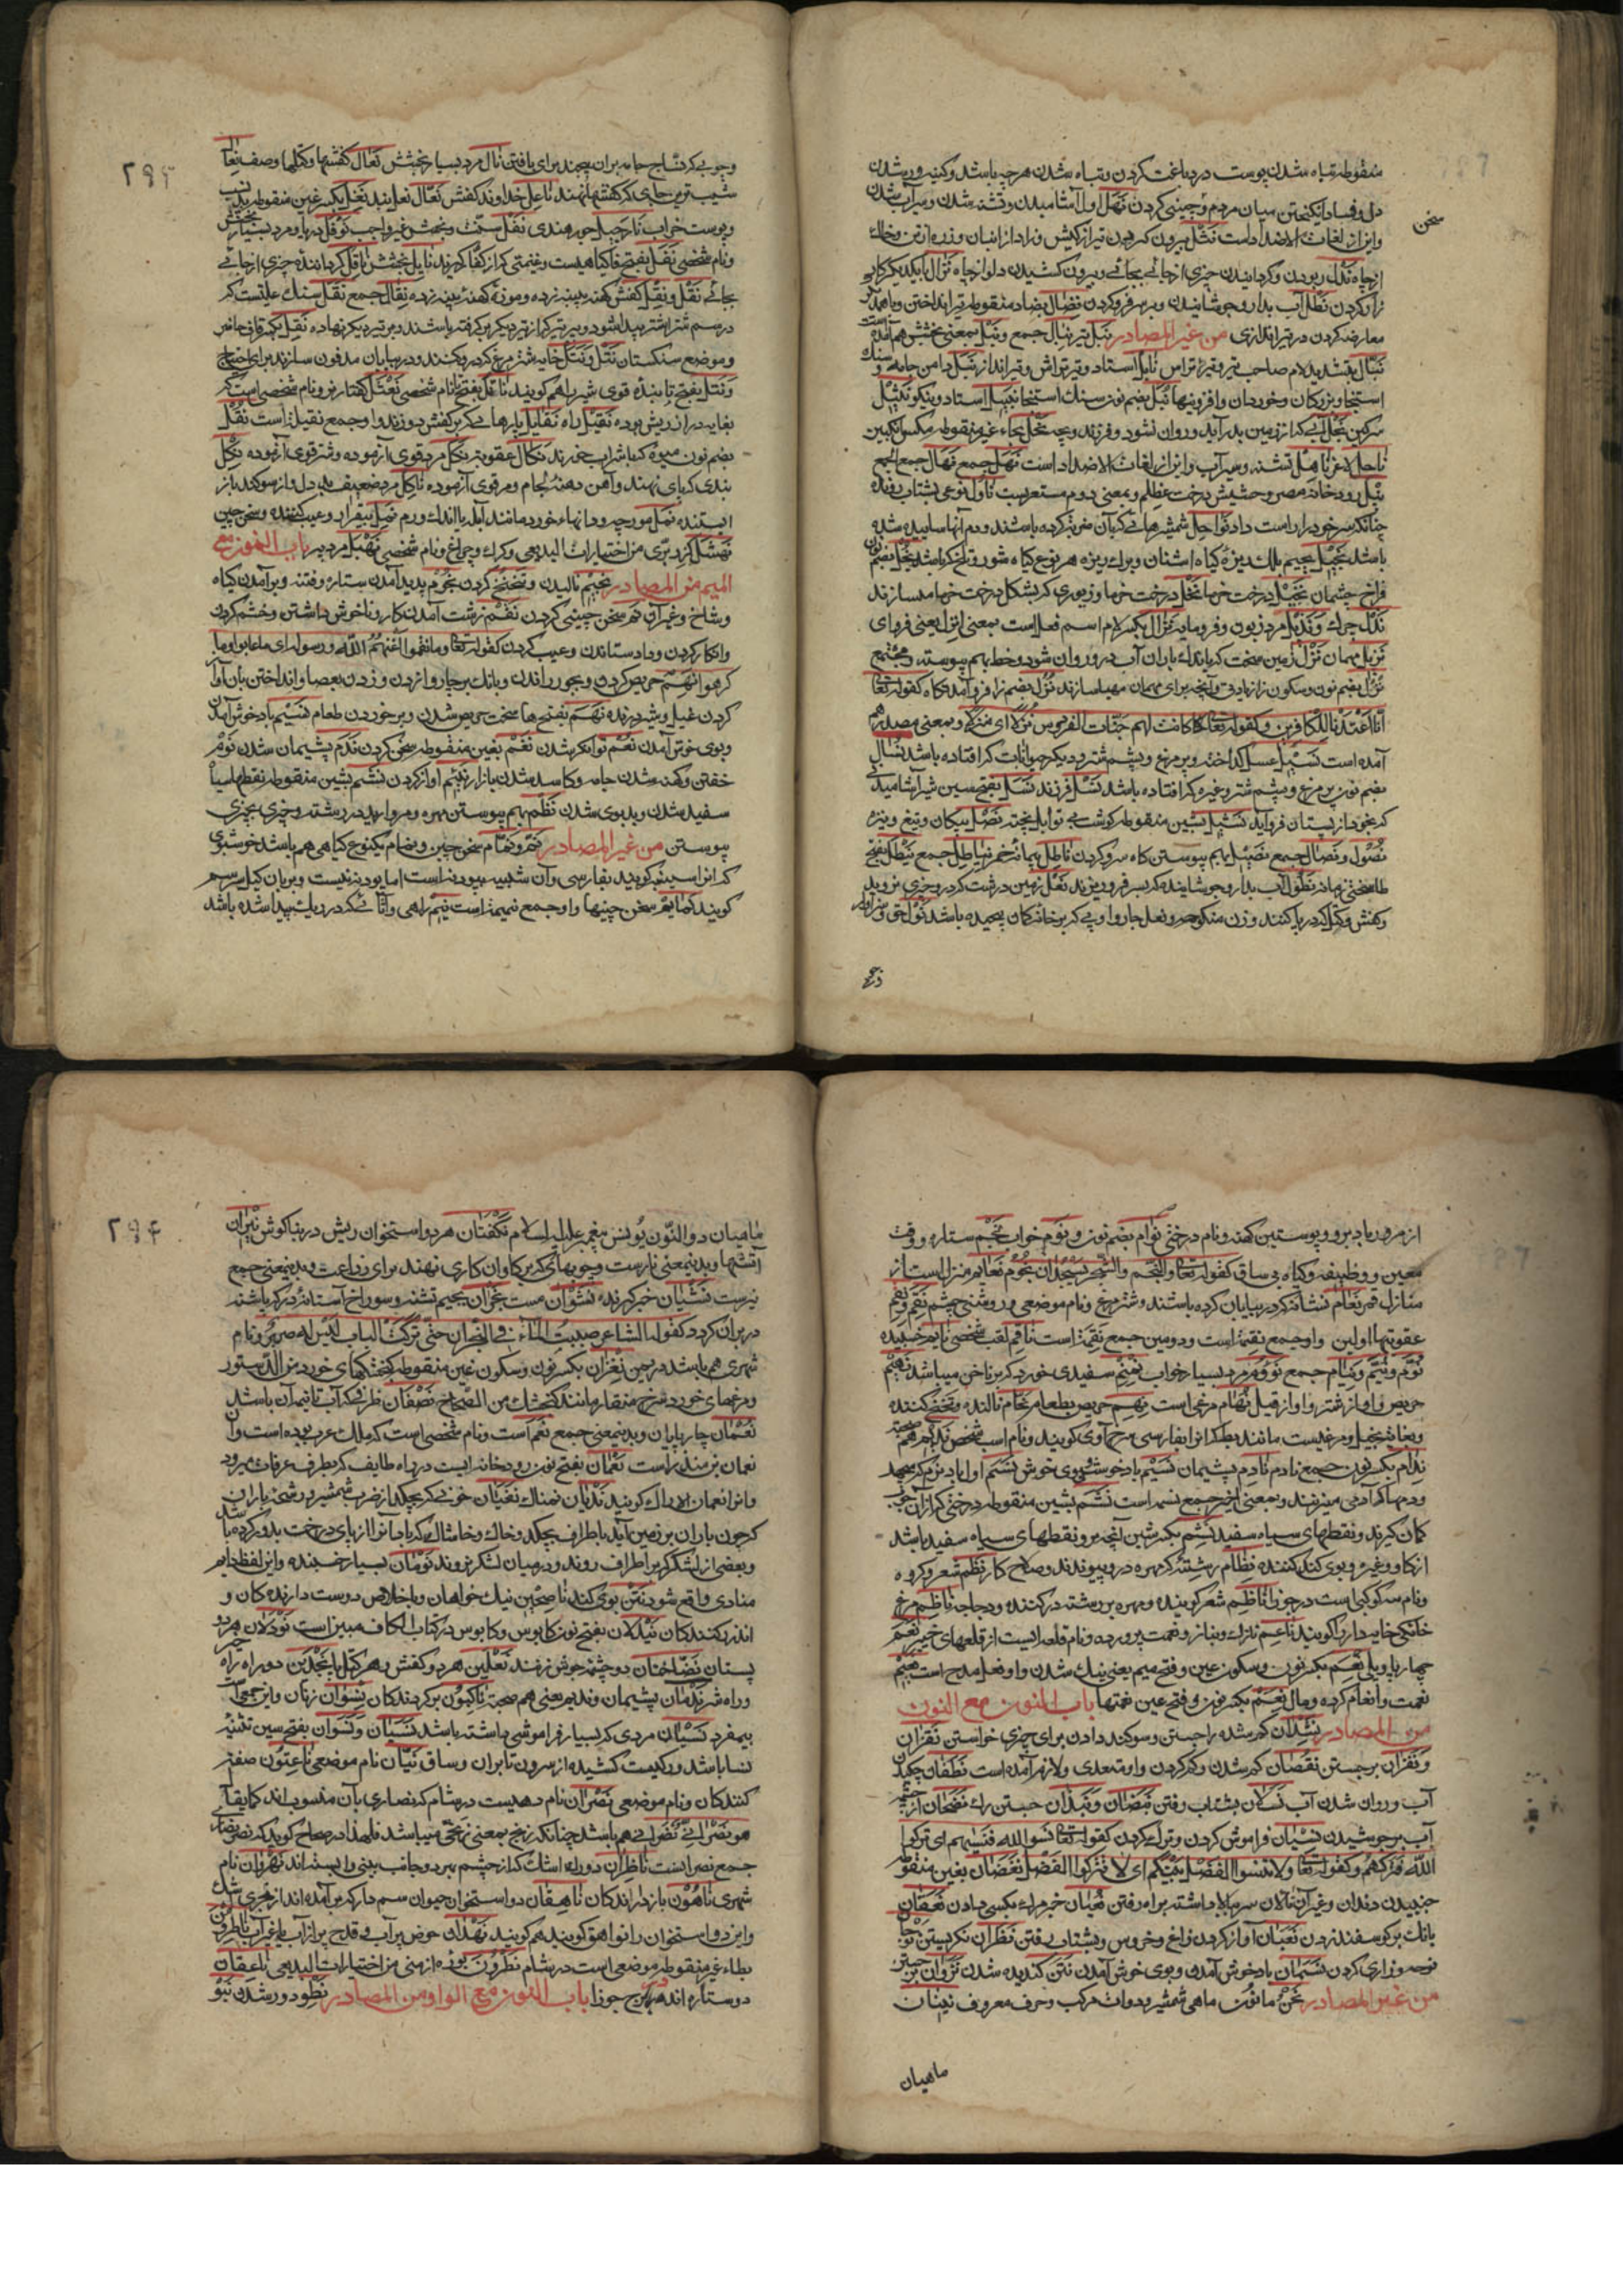 منقوطه تباه شدن پوست در دباغت کردن و تباه شدن هر چه باشد و کینه ور شدن
دل و فساد انگیختن میان مردم و چینی کردن نهل اول آشامیدن و تشنه شدن و سیراب شدن
سخن
و این از لغات الاضداد است نثل بیرون کردن تیر از کیش و زاد از انبان و زره از تن و خاک
از چاه نقل ربودن و گردانیدن چیزی از جائی بجائی و بیرون کشیدن دلو از چاه نزال با یکدیگر کارزار
را و کردن نطل آب بدارو جوشانیدن و بر سر فرو کردن نضال بضاد منقوطه تیر انداختن و باهم
معارضه کردن در تیر اندازی من غیر المصادر نبل تیر نبال جمع و نبل بمعنی بخشش هم آمده است
نبال بتشدید لام صاحب تیر و تیر تراش نابل استاد و تیر تراش و تیر انداز نبل دامن جامه و سنک
استنجا و بزرکان و خوردان و افزونیها نبل بضم نون سنک استنجا نبیل استاد و نیکو نثیل
سرکین نجل آبی که از زمین بدر آید و روان نشود و فرزند و بچه نحل بحاء غیر منقوطه مکس انکبین
ناحل لاغر ناهل تشنه و سیر آب و این از لغات الاضداد است نهل جمع نهال جمع الجمع
نیل رود خانه مصر و حشیش درخت عظلم و بمعنی دوم مستعربست
باشد نجیل بجیم بلک ریزه کیاه اشنان و برک ریزه هر نوع کیاه شور و تلخ که باشد نجل بضم نون
فراخ چشمان نخیل درخت خرما نخل درخت خرما و زیوری که بشکل درخت خرما میسازند
نذل چرک و نذیل مرد زبون و فرومایه نزال بکسر لام اسم فعل است بمعنی انزل یعنی فرود آی
نزیل مهمان نزل زمین سخت که باندک باران آب در و روان شود و خط بهم پیوسته و مجتمع
نزل بضم نون و سکون زا زیادتی و آنچه برای مهمان مهیا سازند نزل بضم زا فرود آمدنکاه کقوله تعا
انا اعتدنا للکافرین و کقوله تعا کانت لهم جنات الفردوس نزلا ای منزلا و بمعنی مصدر هم
آمده است نسیل عسل کداخته و پر مرغ و پشم شتر و دیکر حیوانات که افتاده باشد نسال
بضم نون پر مرغ و پشم شتر و غیره که افتاده باشد نسل فرزند نسل بفتح سین شیر آشامیدنی
که بخود از پستان فرو آید نشیل بشین منقوطه کوشت بی توابل پخته نصل پیکان و تیغ و نیزه
نصول و نصال جمع نصیل بهم پیوستن کاه سر و کردن ناطل پیمانه خمر نیاطل جمع نیطل بفتح
طا سختی زمانه نطول آب بدارو جوشانیده که بسر فرو ریزند نعل زمین درشت که درو چیزی نروید
و کفش و کتل که در پا کنند و زن منکوحه و نعل چاروا و پی که بر خانه کمان پیچیده باشد نواحق
وچو

۲۹۳
و چوبی که نساج جامه بر آن پیچد برای بافتن نال مرد بسیار بخشش نعال کفشها و کتلها و صف نعال
شیب ترین جای که کفشها نهند ناعل خداوند کفش نعال نعل بند نغل بکسر غین منقوطه
و نام شخصی نفل بفتح فا کیاهیست و غنیمتی که از کفار کیرند نایل بخشش ناقل کرداننده چیزی از جائی
بجائی نقل و نقل کفش کهنه پینه زده و موزه کهنه پینه زده نقال جمع نقل سنک
و موضع سنکستان نثل و نثل خایه شتر مرغ که در و کنند و در بیابان مدفون سازند برای احتیاج
و نتل بفتح تا بنده قوی شیر را هم کویند ناتل بفتح تا نام شخصی نعثل کفتار نر و نام شخصی است که
بغایت دراز ریش بوده نقیل راه نقایل پارهائی که بر کفش دوزند و او جمع نقیله است نقل
بضم نون میوه که با شراب خورند نکال عقوبت نکل مرد قوی آزموده و شتر قوی آزموده نکل
بندی که بپای نهند و آهن دهنه لجام و مرد قوی آزموده ناکل مرد ضعیف بد دل و از سوکند باز
ایستنده نمل مورچه و دانهاء خورد مانند آبله با اندک ورم نمل بیقرار و عیب کننده و سخن چین
نهشل کزر بری من اختیارات البدیعی و کرک و چراغ و نام شخصی نهبل مرد پیر باب النون مع
المیم من المصادر نحیم نالیدن و تنحنح کردن نجوم پدید آمدن ستاره و فتنه و بر آمدن کیاه
و شاخ و غیر آن نم سخن چینی کردن نقم زشت آمدن کار و ناخوش داشتن و خشم کردن
و انکار کردن و داد ستاندن و عیب کردن کقوله تعا و ما نقموا الا ان اغنیهم الله و رسوله ای ما عابوا و ما
کرهوا نهم حریص کردن و بجور راندن و بانک بر چاروا زدن و زدن بعصا و انداختن بان آواز
کردن غیل و شیر درنده نهم بفتح ها سخت حریص شدن و بر خوردن طعام نسیم باد خوش آمدن
و بوی خوش آمدن نعم توانکر شدن نغم بغین منقوطه سخن کردن ندم پشیمان شدن نوم
خفتن و کهنه شدن جامه و کاسد شدن بازار نئیم آواز کردن نشم بشین منقوطه نقطهاء سیاه
سفید شدن و بد بوی شدن نظم بهم پیوستن مهره و مروارید در رشته و چیزی بچیزی
پیوستن من غیر المصادر نم و نمام سخن چین و نمام یکنوع کیاهی هم باشد خوشبوی
که انرا سیسنبر کویند بفارسی و آن شبیه ببودنه است اما پودنه نیست و بریان کیل سر سم
کویند نمایم سخن چینیها و او جمع نمیمه است نیم راهی و اثائی که در ریک پیدا شده باشد

از مرور باد برو و پوستین کهنه و نام درختی نوام بضم نون و نوم خواب نجم ستاره و وقت
معین و وظیفه و کیاه بی ساق کقوله تعا و النجم و الشجر یسجدان نجوم نعایم منزلیست از
منازل قمر نعام نشانه که در بیابان کرده باشند و شتر مرغ و نام موضعی و روشنی چشم نقم و نقم
عقوبتها اولین و او جمع نقمة است و دومین جمع نقمة است ناقم لقب شخصی نایم خسبیده
نوم و نیم و نیام جمع نووم مرد بسیار خواب نمنم سفیدی خورد که بر ناخن میباشد نهیم
حریص و آواز شتر و آواز فیل نهام مرغی است نهم حریص بطعام نحام نالنده و تنحنح کننده
و بغایت بخیل و مرغیست مانند بط که انرا بفارسی سرخ آوی کویند و نام اسب شخصی ندیم هم صحبت
ندام بکسر نون جمع نادم نادم پشیمان نسیم باد خوش و بوی خوش نسم اول باد نرم که میجهد
و دمها که آدمی میزنند و بمعنی اخیر جمع نسمه است نشم بشین منقوطه درختی که از آن چوب
کمان کیرند و نقطهای سیاه سفید نشم بکسر شین آنچه برو نقطهای سیاه سفید باشد
از کاو و غیره و بوی کند کننده نظام رشته که مهره درو پیوندند و صلاح کار نظم شعر و کروه
و نام سه کوکب است در جوزا ناظم شعر کوینده و مهره بر رشته درکننده و دجاجه ناظم مرغ
خانکی خایه دار را کویند ناعم نازک و بناز و نعمت پرورده و نام قلعه ایست از قلعهای خیبر نعم
چهارپا و بلی نعم بکسر نون و سکون عین و فتح میم یعنی نیک شدن و او فعل مدح است نعیم
نعمت و انعام کرده و مال نعم بکسر نون و فتح عین نعمتها باب النون مع النون
من المصادر نشدان کم شده را جستن و سوکند دادن برای چیزی خواستن نقزان
و نفزان بر جستن نقصان کم شدن و کم کردن و او متعدی و لازم آمده است نطفان چکیدن
آب و روان شدن آب نسلان بشتاب رفتن نبضان و نبذان جستن رک نضخان از چشمه
آب بر جوشیدن نسیان فراموش کردن و ترک کردن کقوله تعا نسوا الله فنسیهم ای ترکوا
الله فترکهم و کقوله تعا و لا تنسوا الفضل بینکم ای لا تترکوا الفضل نغضان بغین منقوطه
جنبیدن دندان و غیر آن نالان سر ببالا داشته براه رفتن نعیان خبر مرک بکسی دادن نعقان
بانک بر کوسفند زدن نعبان آواز کردن زاغ و خروس و بشتاب رفتن نظران نکریستن
نوحه و زاری کردن نسمان باد خوش آمدن و بوی خوش آمدن نتن کندیده شدن نزوان بر جستن
من غیر المصادر نحن ما نون ماهی و شمشیر و دوات مرکب و حرف معروف نینان
ماهیان

۲۹۴
ماهیان ذو النون یونس پیغمبر علیه السلام نکفتان هر دو استخوان ریش در بنا کوش نیران
آتشها و بدینمعنی نارست و چوبهای که بر کاوان کاری نهند برای زراعت و بدینمعنی جمع
نیرست نشیان خبر کیرنده نشوان مست نجران بجیم تشنه و سوراخ آستانه در که پاشنه
در بر آن کردد کقوله الشاعر صببت الماء فی النجران حتی ترکت الباب لیس له صریر و نام
شهری هم باشد در یمن نغران بکسر نون و سکون غین منقوطه کنجشکهای خورد من الدستور
و مرغهای خورد سرخ منقار مانند کنجشک من الصحاح نصفان ظرفی که آب تا نیمه آن باشد
نعمان چارپایان و بدینمعنی جمع نعم است و نام شخصی است که ملک عرب بوده است و او
نعمان بن منذر است نعمان بفتح نون رود خانه ایست در راه طایف که بطرف عرفات میرود
و انرا نعمان الاراک کویند ندیان نمناک نفیان خونی که بچکد از ضرب شمشیر و رشحه باران
که چون باران بر زمین آید باطراف بچکد و خاک و خاشاک که باد انرا از پای درخت بدور کرده باشد
و بعضی از لشکر که بر اطراف روند و در میان لشکر نروند نومان بسیار خسبنده و این لفظ دایم
منادی واقع شود نتن بوی کند ناصحین نیک خواهان و باخلاص دوست دارندکان و
اندرز کنندکان نیدلان بفتح نون کابوس و کابوس در کتاب الکاف مبین است نودلان هر دو
پستان نضاختان دو چشمه جوش زنند نعلین هر دو کفش و هر کتل پا نجدین دو راه راه خیر
و راه شر ندمان پشیمان و ندیم یعنی هم صحبة ناکبون بر کردندکان نسوان زنان و این جمعیست
بیمفرد نسیان مردی که بسیار فراموشی داشته باشد نسیان و نسوان بفتح سین تثنیه
نسا باشد و رکیست کشیده از سرون تا بران و ساق نیان نام موضعی ناعتون صفت
کنندکان و نام موضعی نصران نام دهیست در شام که نصاری بآن منسوب اند کما یقال
هو نصرانی نصرانی هم باشد چنانکه زنج بمعنی زنجی میباشد فلهذا در صحاح کوید که نصرانی نصاری
جمع نصرانست ناظران دو رک اشک که از چشم بهر دو جانب بینی وابسته اند نهروان نام
شهری ناهون بازدارندکان ناهقان دو استخوان حیوان سم دار که بر آمده اند از مجری اشک
و این دو استخوان را نواهق کویند هم کویند نهدان حوض پر آب و قدح پر از آب یا غیر آب ناطرون
بطاء غیر منقوطه موضعی است در شام نطرون بوره ارمنی من اختیارات البدیعی ناعقان
دو ستاره اند در برج جوزا باب النون مع الواو من المصادر نطو دور شدن نبو